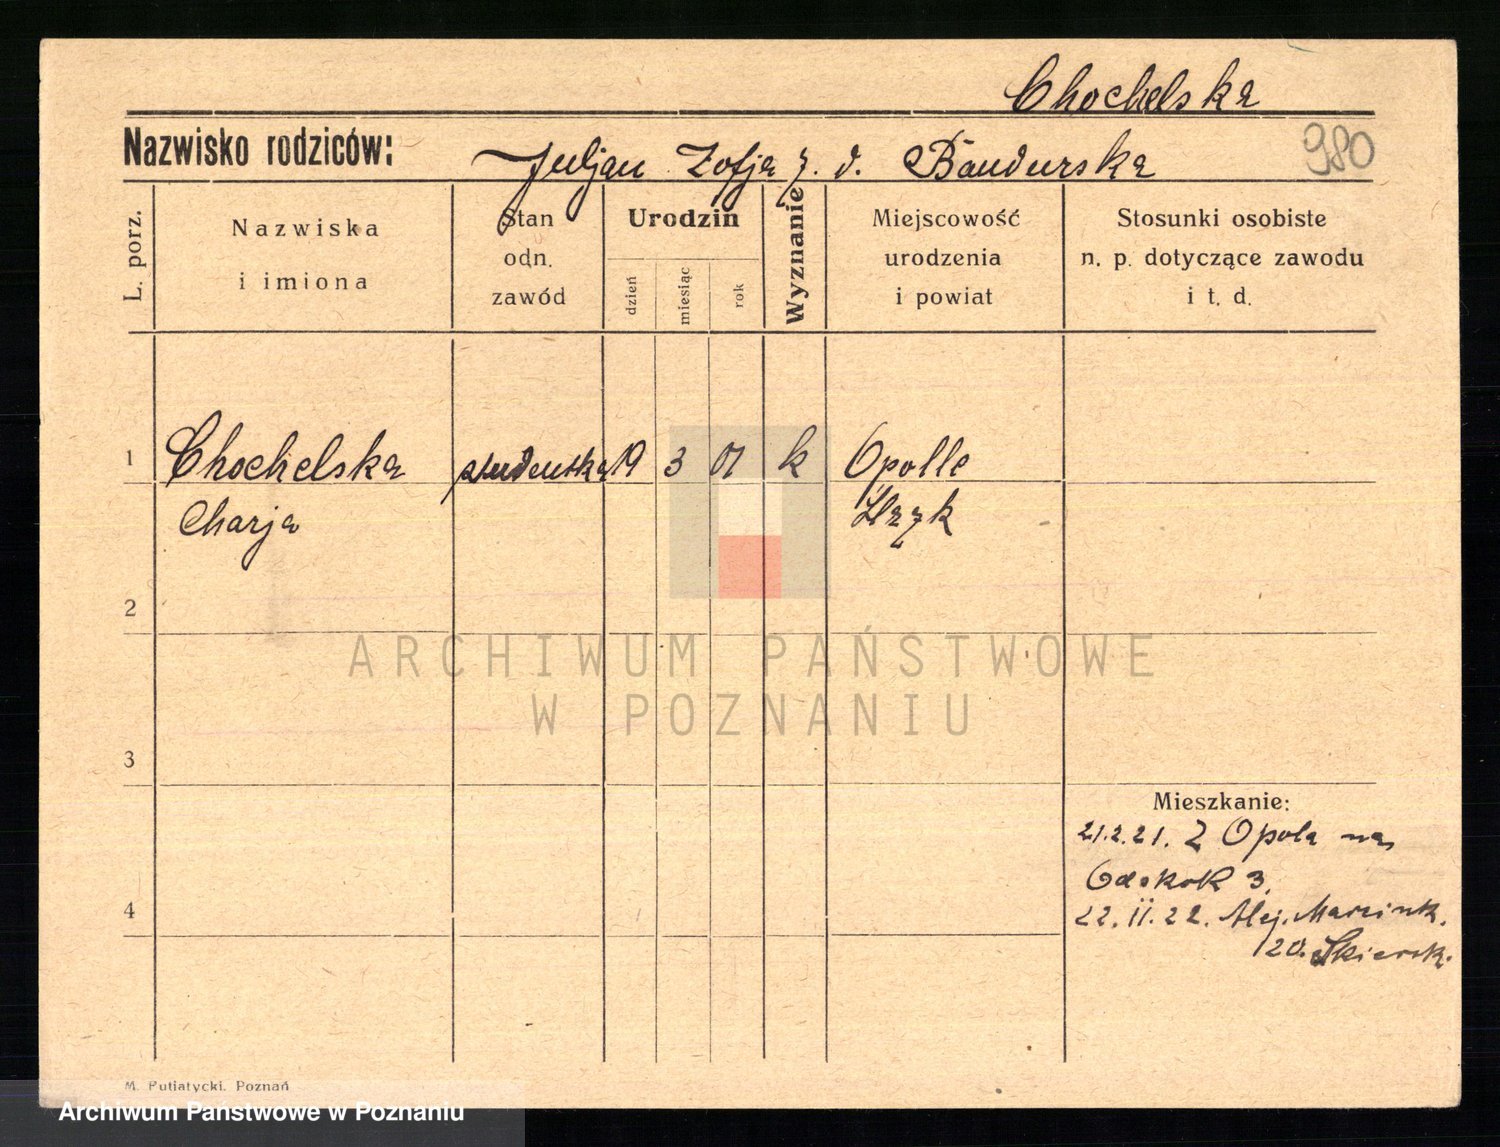 Chochelska
Nazwisko rodziców: Juljan Zofja z. d. Bandurska
980
L. porz.
Nazwiska
i imiona
Stan
odn.
zawód
Urodzin
dzień
miesiąc
rok
Wyznanie
Miejscowość
urodzenia
i powiat
Stosunki osobiste
n. p. dotyczące zawodu
i t. d.
1 Chochelska studentka 19 3 01 k Opolle
Marja
2
3
Mieszkanie:
21.2.21. Z Opola na
3.
4
22.II.22. Alej. Marcink.
20.
M. Putiatycki. Poznań
ARCHIWUM PAŃSTWOWE
W POZNANIU
Archiwum Państwowe w Poznaniu